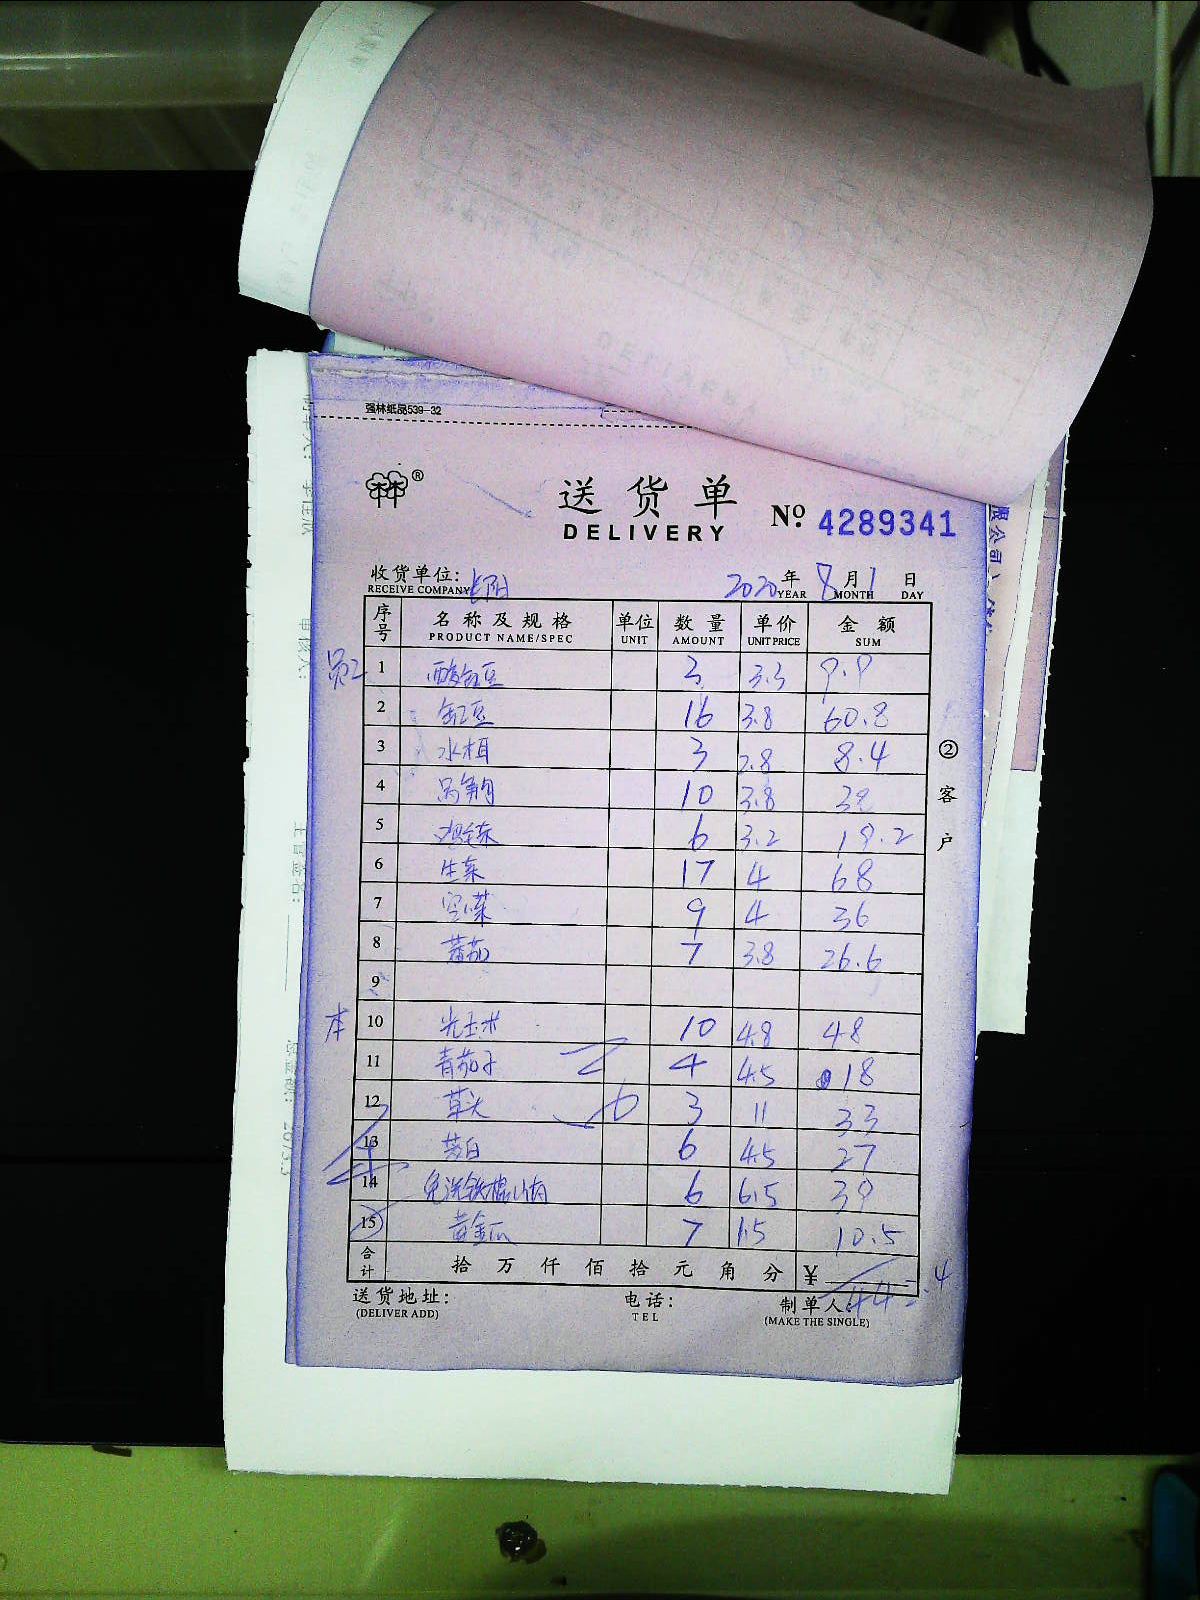 强林纸品539-32
®
送货单
DELIVERY
No. 4289341
收货单位: 长阳
RECEIVE COMPANY
2020年 8月 1日
YEAR MONTH DAY
序号 名称及规格 单位 数量 单价 金额
PRODUCT NAME/SPEC UNIT AMOUNT UNIT PRICE SUM
员工 1 酸缸豆 3 3.3 9.9
2 缸豆 16 3.8 60.8
3 水 3 2.8 8.4
4 10 3.8 38
5 6 3.2 19.2
6 生菜 17 4 68
7 空心菜 9 4 36
8 蕃茄 7 3.8 26.6
9
本 10 光玉米 10 4.8 48
11 青茄子 4 4.5 18
12 草头 3 11 33
13 茭白 6 4.5 27
14 免洗铁棍山 6 6.5 39
15 黄金瓜 7 1.5 10.5
合计 拾 万 仟 佰 拾 元 角 分 ¥ 442.4
送货地址: 电话: 制单人:
(DELIVER ADD) TEL (MAKE THE SINGLE)
②客户